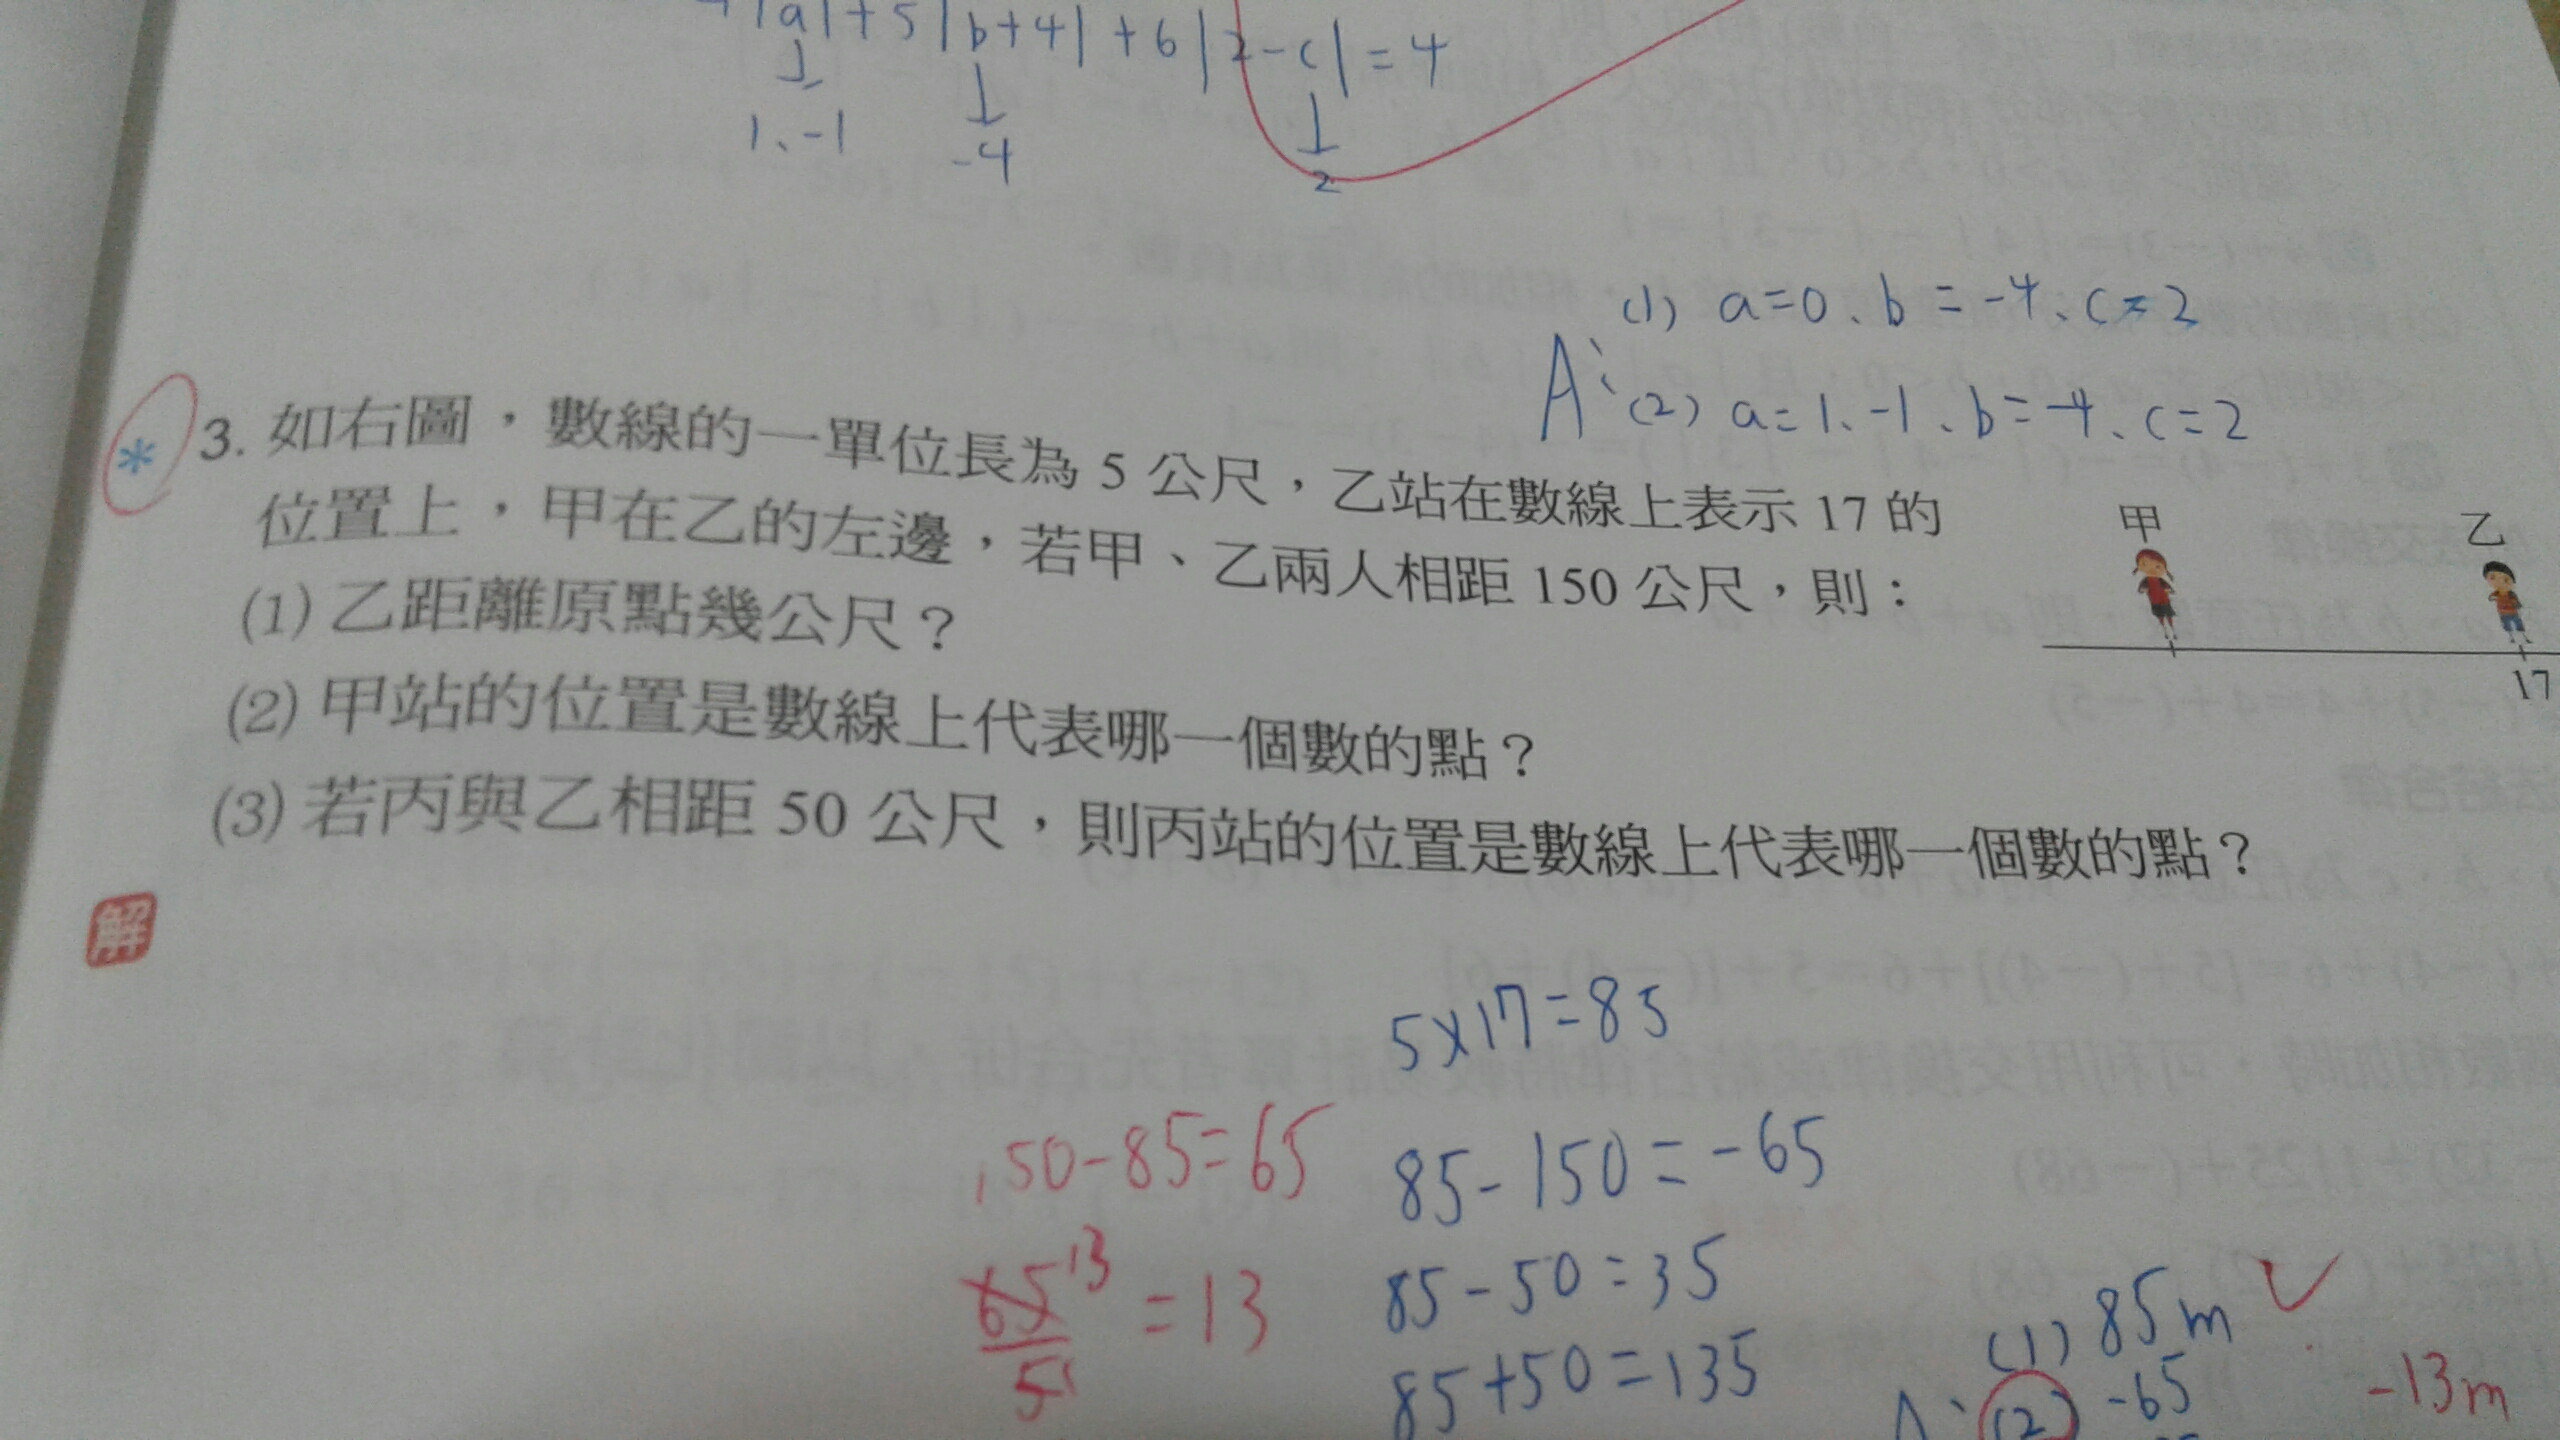 |a|+5|b+4|+6|2-c|=4
1、-1 -4 2
(1) a=0、b=-4、c=2
A:(2) a=1、-1、b=-4、c=2
* 3. 如右圖，數線的一單位長為 5 公尺，乙站在數線上表示 17 的
位置上，甲在乙的左邊，若甲、乙兩人相距 150 公尺，則：
甲 乙
17
(1) 乙距離原點幾公尺？
(2) 甲站的位置是數線上代表哪一個數的點？
(3) 若丙與乙相距 50 公尺，則丙站的位置是數線上代表哪一個數的點？
解
5×17=85
150-85=65
85-150=-65
65/5 13 1 =13
85-50=35
85+50=135
(1) 85m
A:(2) -65
-13m